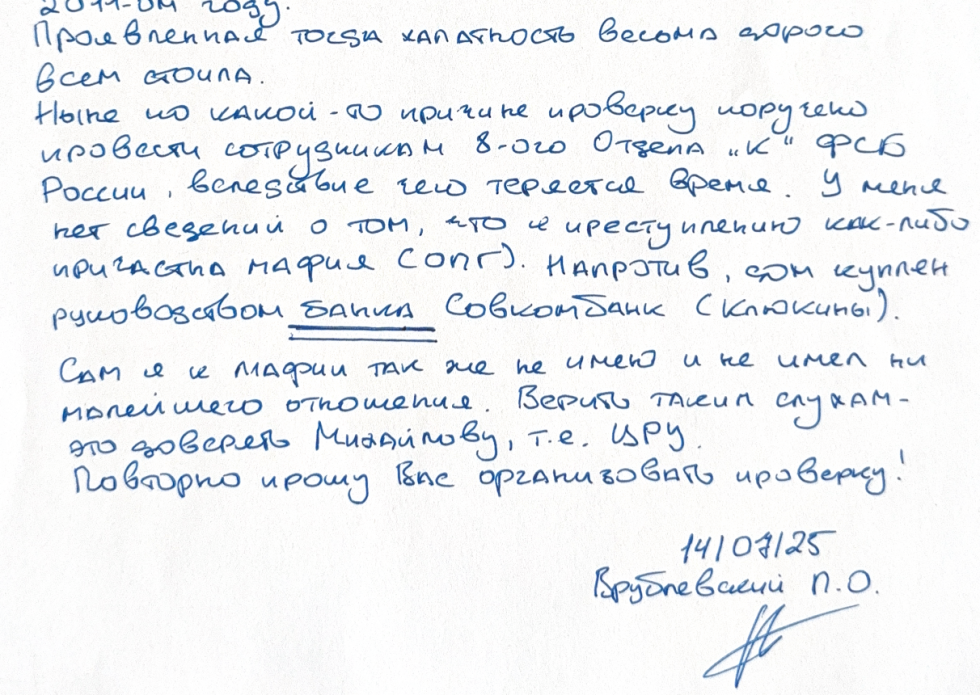 2011-ом году.
Проявленная тогда халатность весьма дорого
всем стоила.
Ныне по какой-то причине проверку поручено
провести сотрудникам 8-ого Отдела „К“ ФСБ
России, вследствие чего теряется время. У меня
нет сведений о том, что к преступлению как-либо
причастна мафия (ОПГ). Напротив, дом куплен
руководством банка Совкомбанк (Клюкины).
Сам я к мафии так же не имею и не имел ни
малейшего отношения. Верить таким слухам-
это доверять Михайлову, т.е. ЦРУ.
Повторно прошу Вас организовать проверку!
14/07/25
Врублевский П.О.